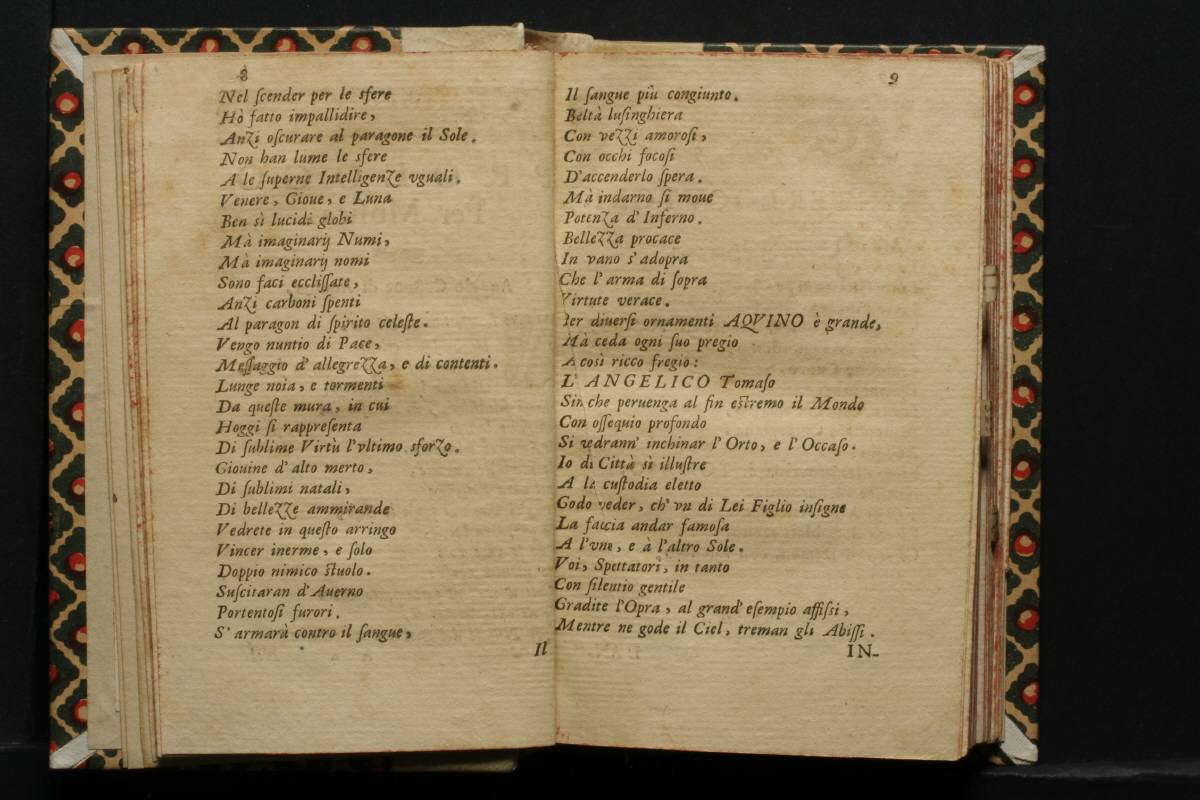 8
Nel ſcender per le sfere
Hò fatto impallidire,
Anzi oſcurare al paragone il Sole.
Non han lume le sfere
A le ſuperne Intelligenze vguali.
Venere, Gioue, e Luna
Ben sì lucidi globi
Mà imaginarij Numi,
Mà imaginarij nomi
Sono faci eccliſſate,
Anzi carboni ſpenti
Al paragon di ſpirito celeſte.
Vengo nuntio di Pace,
Meſſaggio d'allegrezza, e di contenti.
Lunge noia, e tormenti
Da queſte mura, in cui
Hoggi ſi rappreſenta
Di ſublime Virtù l'vltimo sforzo.
Giouine d'alto merto,
Di ſublimi natali,
Di bellezze ammirande
Vedrete in queſto arringo
Vincer inerme, e ſolo
Doppio nimico ſtuolo.
Suſcitaran d'Auerno
Portentoſi furori.
S'armarà contro il ſangue,
Il
9
Il ſangue più congiunto.
Beltà luſinghiera
Con vezzi amoroſi,
Con occhi focoſi
D'accenderlo ſpera.
Mà indarno ſi moue
Potenza d'Inferno.
Bellezza procace
In vano s'adopra
Che l'arma di ſopra
Virtute verace.
Per diuerſi ornamenti AQVINO è grande,
Mà ceda ogni ſuo pregio
A così ricco fregio:
L'ANGELICO Tomaſo
Sin che peruenga al fin eſtremo il Mondo
Con oſſequio profondo
Si vedrann' inchinar l'Orto, e l'Occaſo.
Io di Città sì illuſtre
A la cuſtodia eletto
Godo veder, ch'vn di Lei Figlio inſigne
La faccia andar famoſa
A l'vno, e à l'altro Sole.
Voi, Spettatori, in tanto
Con ſilentio gentile
Gradite l'Opra, al grand' eſempio affiſti,
Mentre ne gode il Ciel, treman gli Abiſſi.
IN-